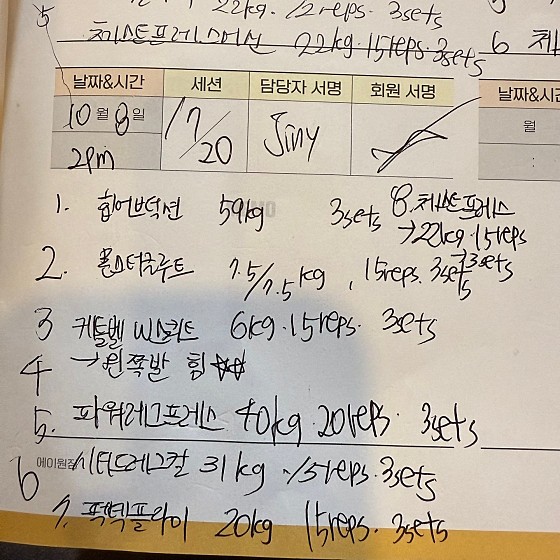 22kg. 12reps. 3sets
체스트프레스머신 22kg. 15reps. 3sets
6
날짜&시간 세션 담당자 서명 회원 서명
10월 8일 17/20 Jiny
2pm
날짜&시간
월
:
1. 힙어브덕션 59kg 3sets
8. 체스트프레스
→22kg. 15reps
3sets
2. 몬스터글루트 7.5/7.5kg, 15reps. 3sets
3 케틀벨 W스쿼트 6kg. 15reps. 3sets
4 → 왼쪽발 힘
5. 파워레그프레스 40kg. 20reps. 3sets
에이원짐
6 시티드레그컬 31kg. 15reps. 3sets
7. 펙덱플라이 20kg 15reps. 3sets